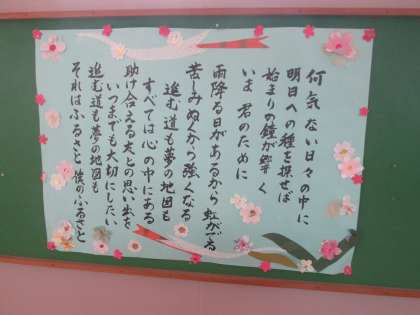 何気ない日々の中に
明日への種を探せば
始まりの鐘が響く
いま 君のために
雨降る日があるから 虹がでる
苦しみぬくから強くなる
進む道も夢の地図も
すべては心の中にある
助け合える友との思い出を
いつまでも大切にしたい
進む道も夢の地図も
それはふるさと 僕のふるさと